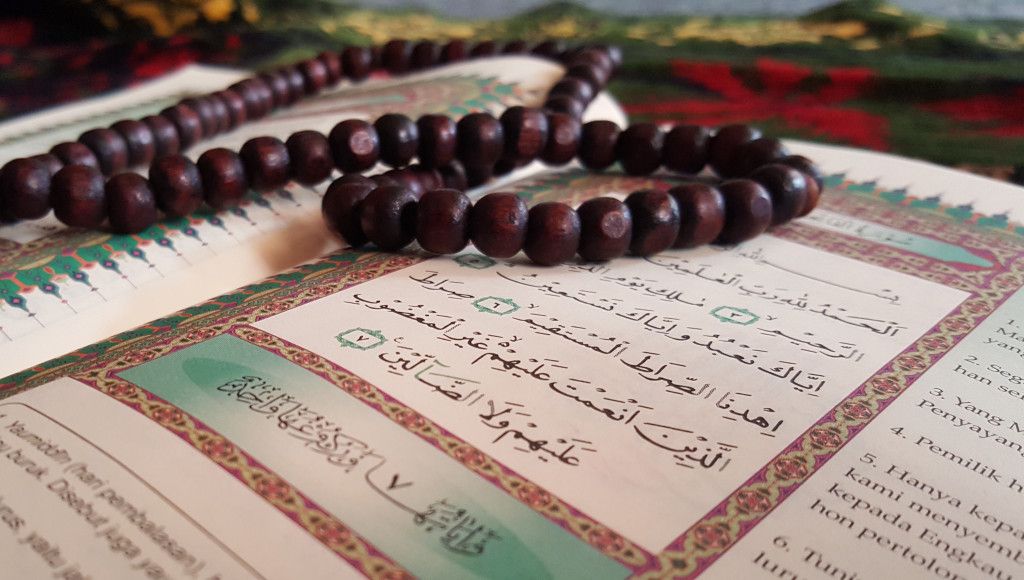 بِسْمِ
اَلْحَمْدُ لِلّٰهِ رَبِّ الْعٰلَمِيْنَ
الرَّحِيْمِ ٣ مٰلِكِ يَوْمِ الدِّيْنِ
اِيَّاكَ نَعْبُدُ وَاِيَّاكَ نَسْتَعِيْنُ
اِهْدِنَا الصِّرَاطَ الْمُسْتَقِيْمَ ٦ صِرَاطَ
الَّذِيْنَ اَنْعَمْتَ عَلَيْهِمْ غَيْرِ الْمَغْضُوْبِ
عَلَيْهِمْ وَلَا الضَّاۤلِّيْنَ ٧
٧
1.
Ma
yang
2. Seg
han se
3. Yang M
Penyayan
4. Pemilik h
5. Hanya kepa
kami menyemb
kepada Engkau
hon pertolo
6. Tunj
lurus
Yaumiddin (hari pembalasan), h
buruk. Disebut juga ya
yaitu ja